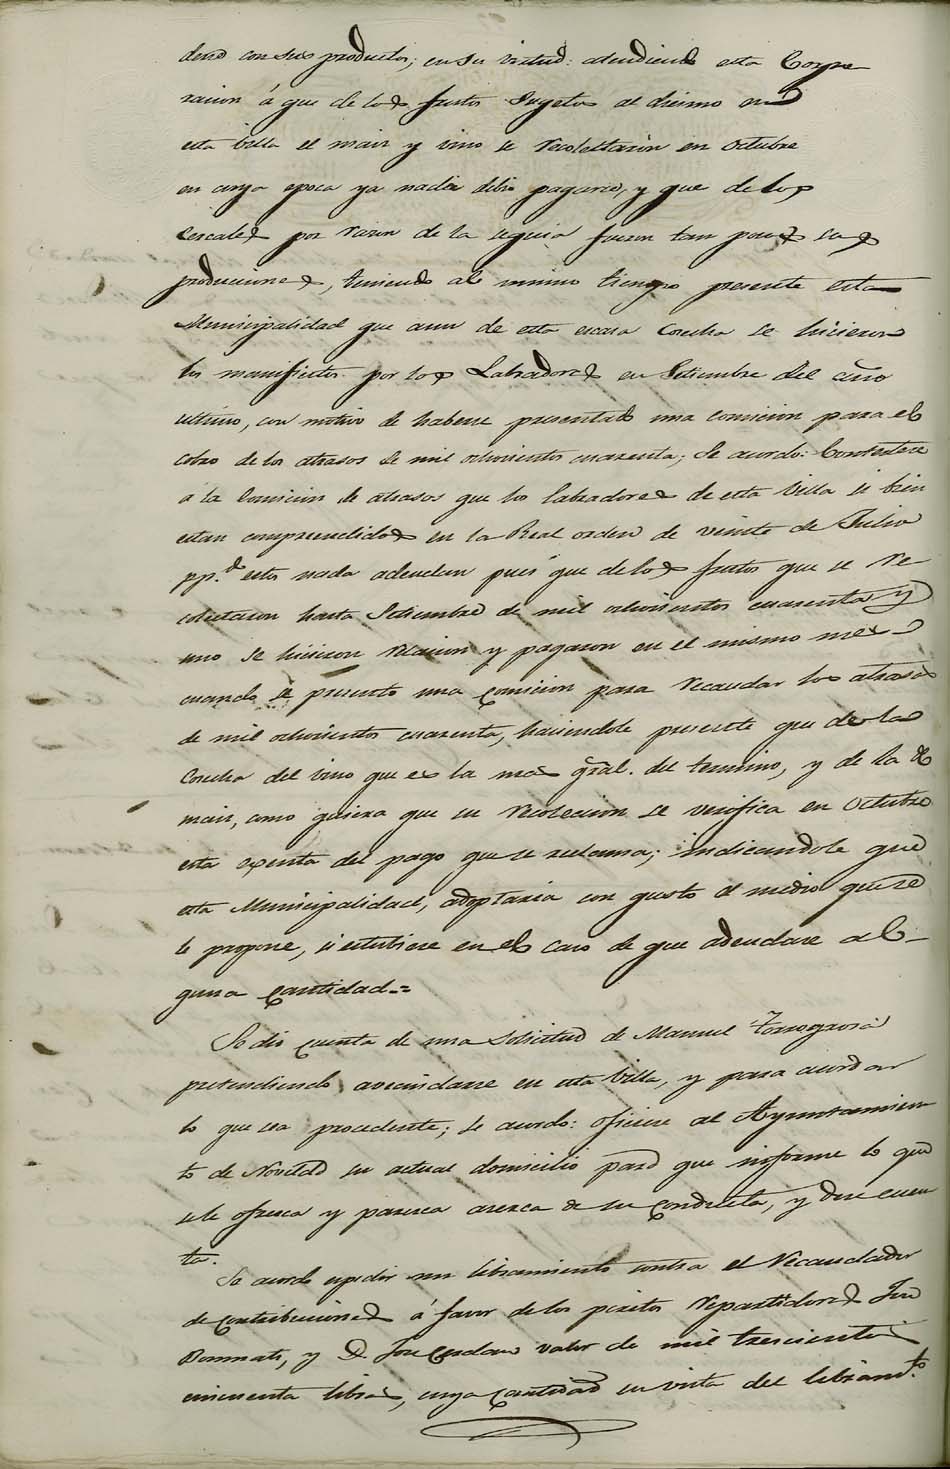 dero con sus productos; en su virtud: atendiendo esta Corpo
racion á que de los frutos sugetos al diesmo en
esta villa el mair y vino se recolectarón en Octubre
en cuya epoca ya nadie debio pagarse, y que de los
cereales por razon de la sequia fueron tan pocas sus
producciones, teniendo al mismo tiempo presente esta
Municipalidad que aun de esta escasa Cosecha se hicieron
los manifiestos por los Labradores en Setiembre del año
ultimo, con motivo de haberse presentado una comicion para el
cobro de los atrasos de mil ochocientos cuarenta; Se acordo: Contestese
á la Comicion de atrasos que los labradores de esta Villa si bien
estan comprendidos en la Real orden de veinte de Julio
pp.do estos nada adeudan pues que de los frutos que se re
colectaron hasta Setiembre de mil ochocientos cuarenta y
uno se hicieron relacion y pagaron en el mismo mes
cuando se presento una comicion para recaudar los atrasos
de mil ochocientos cuarenta, haciendole presente que de la
Cosecha del vino que es la mas gral. del termino, y de la de
mair, como quiera que su recoleccion se verifica en Octubre
esta exenta del pago que se reclama; indicandole que
esta Municipalidad, adoptaria con gusto el medio que se
le propone, si estubiese en el caso de que adeudare al-
guna cantidad.=
Se dio cuenta de una Solicitud de Manuel Torregrosa
pretendiendo avecindarse en esta Villa, y para acordar
lo que sea procedente; se acordo: oficiese al Ayuntamien
to de Novelda su actual domicilio para que informe lo que
se le ofresca y paresca acerca de su conducta, y dese cuen
ta.
Se acordo espedir un libramiento contra el Recaudador
de contribuciones á favor de los peritos repartidores José
Bonmati, y D. Jose Cerdan valor de mil trescientos
cincuenta libras, cuya cantidad en vista del libram.to